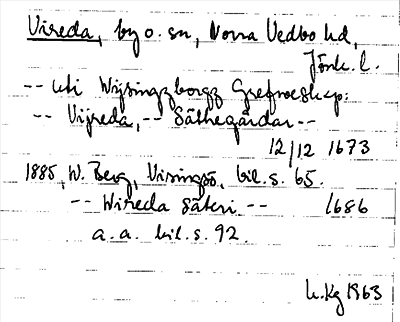 Vireda, by o. sn, Norra Vedbo hd,
Jönk. l.
-- uti Wijsingzborgz Grefweskap:
-- Vijreda, -- Säthegårdar --
12/12 1673
1885, W. Berg, Visingsö, bil. s. 65.
-- Wireda Säteri -- 1686
a. a. bil. s. 92.
1963